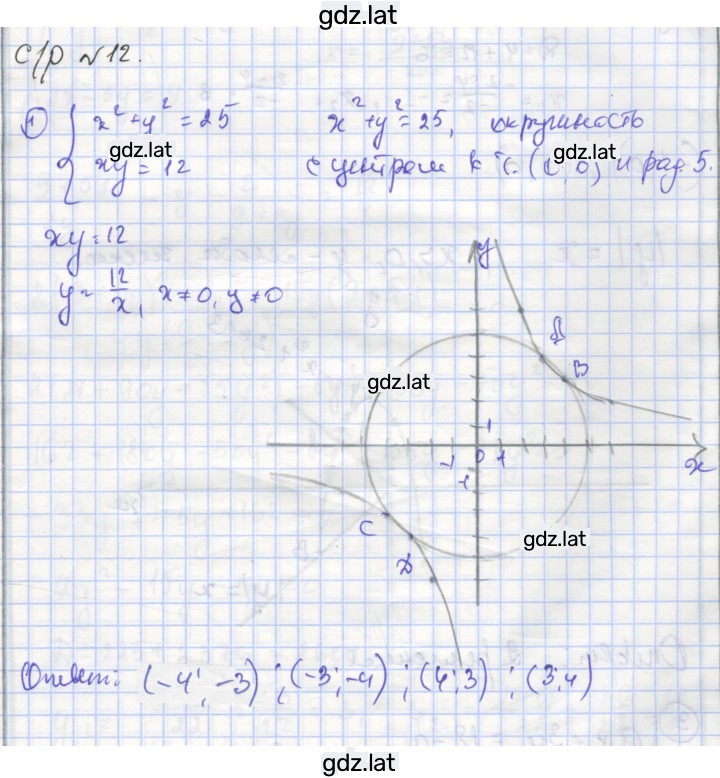 gdz.lat
С/р №12.
1) { x² + y² = 25
xy = 12
x² + y² = 25, окружность
с центром в т. (0; 0) и рад. 5.
gdz.lat
gdz.lat
xy = 12
y = 12/x, x ≠ 0, y ≠ 0
y
A
B
gdz.lat
1
-1 0 1
x
-1
C
D
gdz.lat
Ответ: (-4; -3); (-3; -4); (4; 3); (3; 4)
gdz.lat